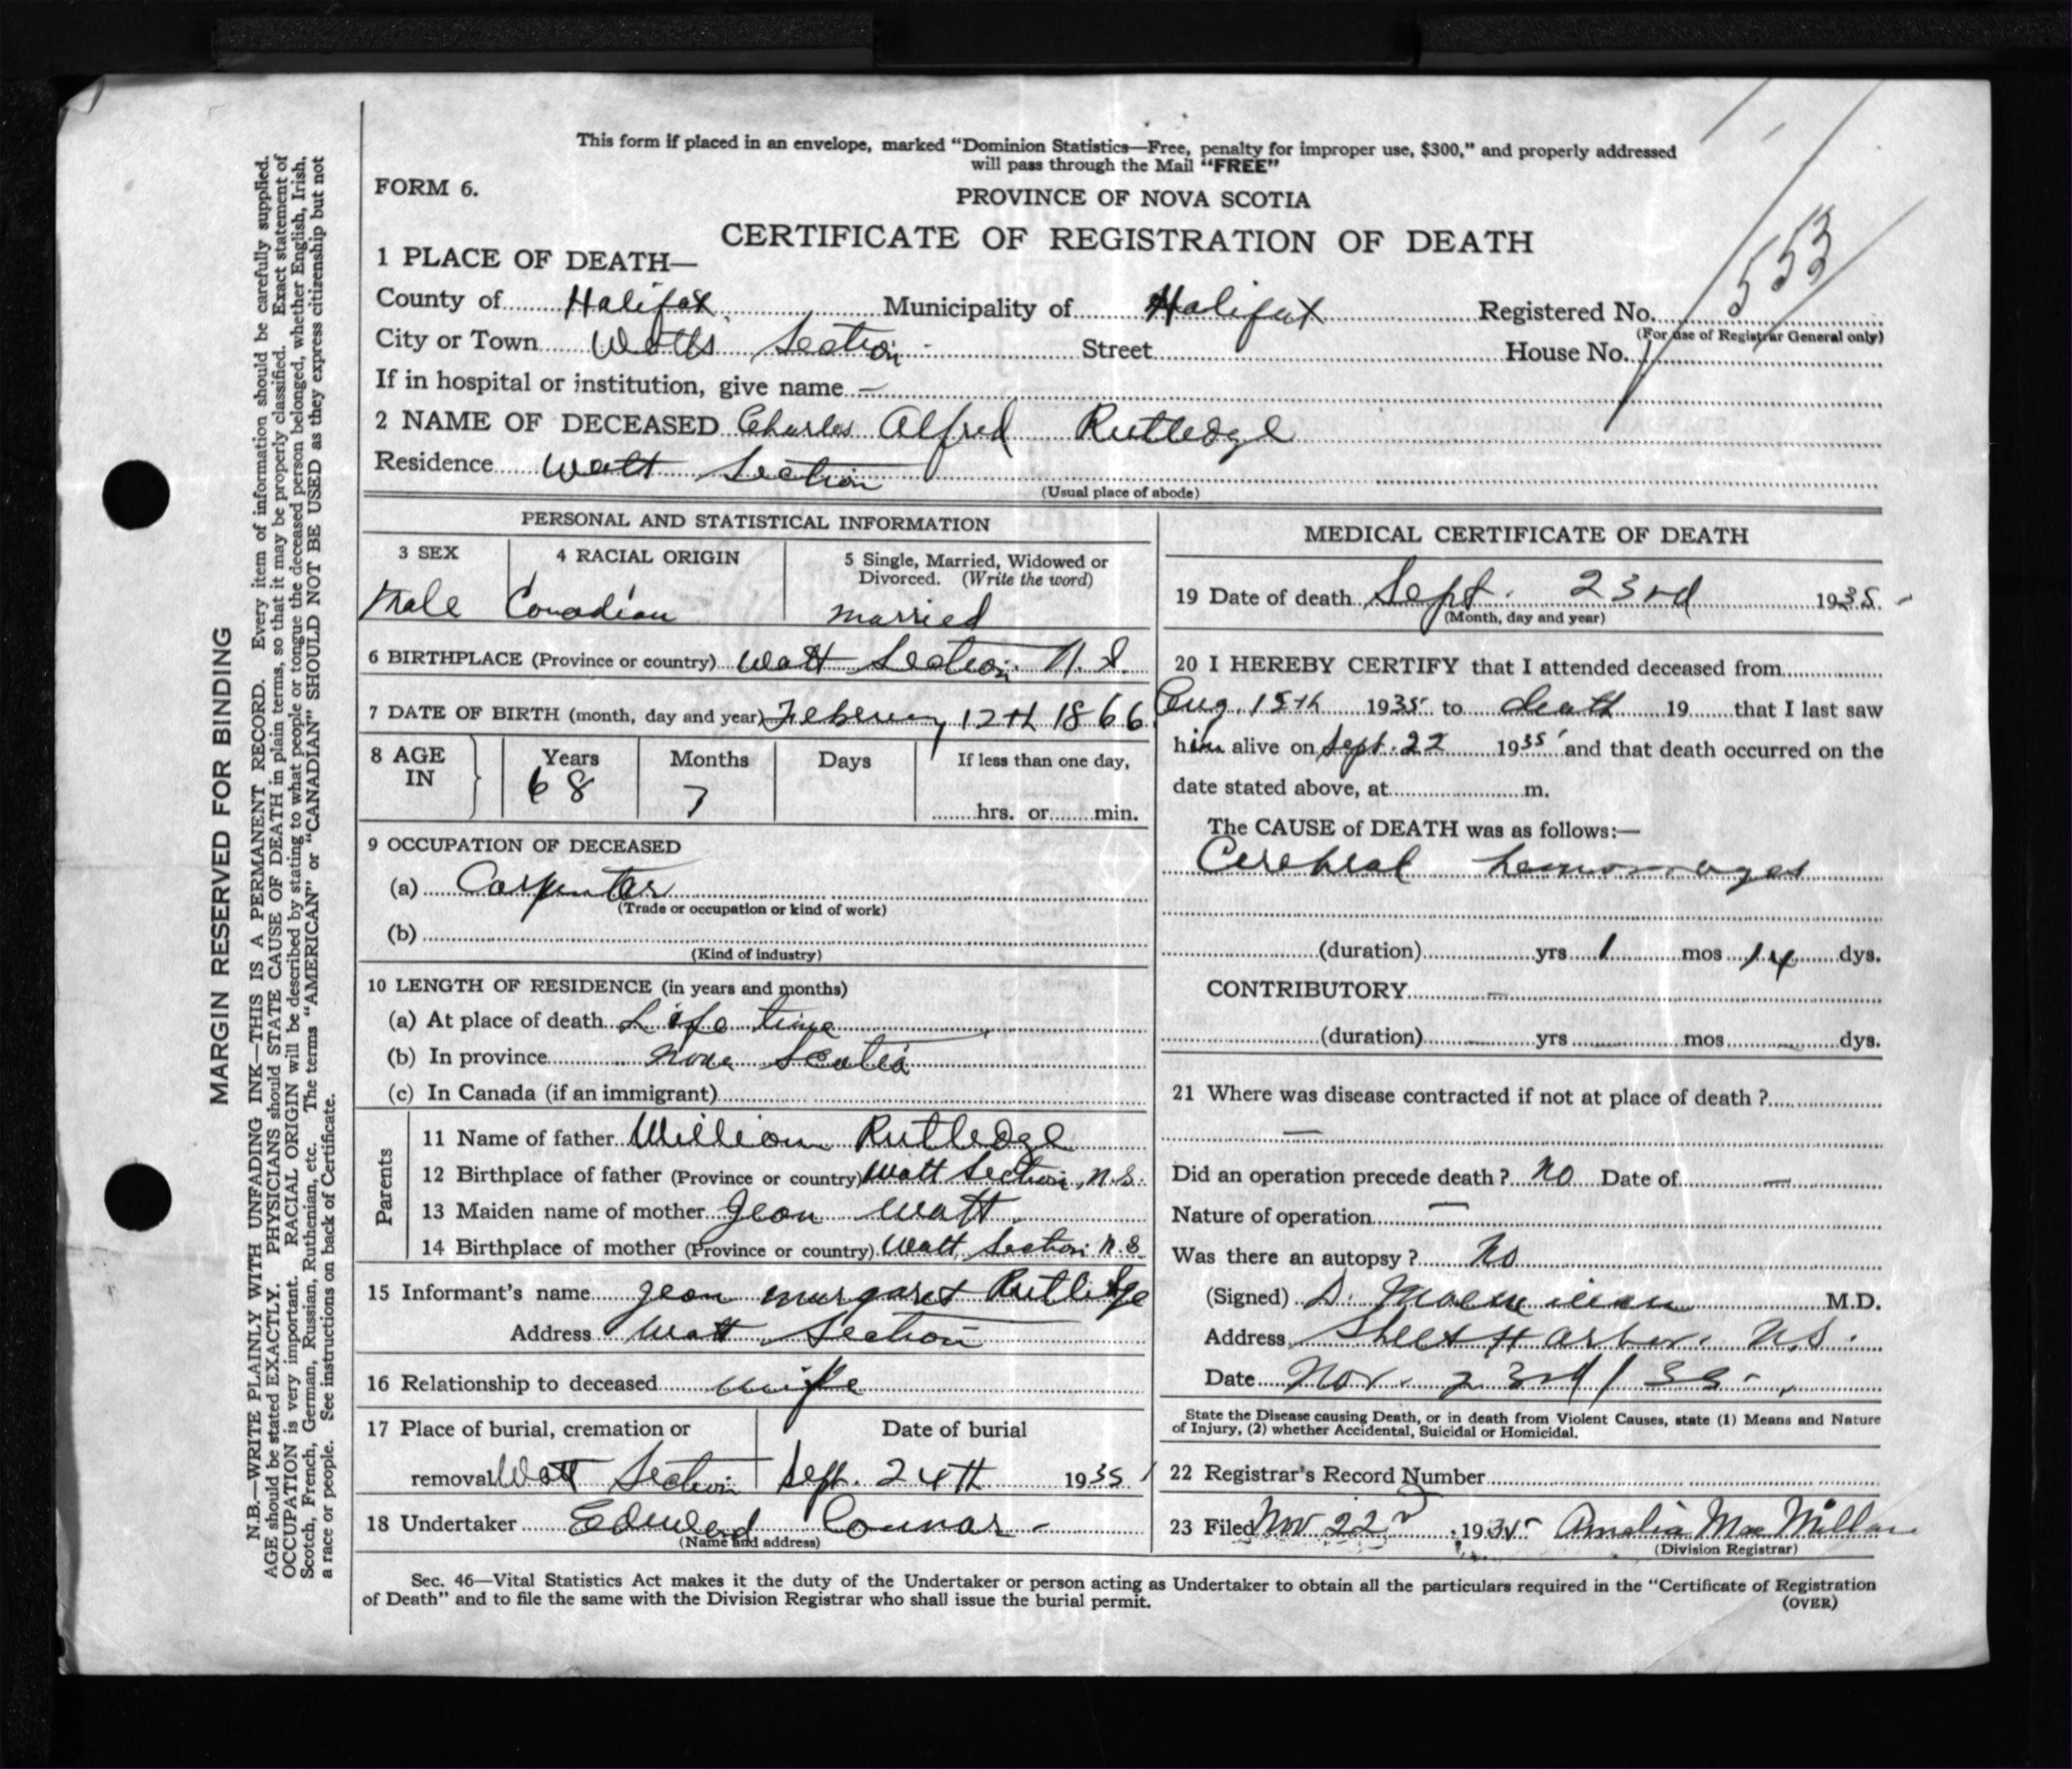 This form if placed in an envelope, marked "Dominion Statistics—Free, penalty for improper use, $300," and properly addressed
will pass through the Mail "FREE"
FORM 6.
PROVINCE OF NOVA SCOTIA
CERTIFICATE OF REGISTRATION OF DEATH
553
1 PLACE OF DEATH—
County of Halifax Municipality of Halifax Registered No.
(For use of Registrar General only)
City or Town Watts Section Street House No.
If in hospital or institution, give name —
2 NAME OF DECEASED Charles Alfred Rutledge
Residence Watt Section
(Usual place of abode)
PERSONAL AND STATISTICAL INFORMATION
3 SEX 4 RACIAL ORIGIN 5 Single, Married, Widowed or
Divorced. (Write the word)
Male Canadian married
6 BIRTHPLACE (Province or country) Watt Section N.S.
7 DATE OF BIRTH (month, day and year) Feberury 12th 1866
8 AGE IN Years Months Days If less than one day,
68 7 hrs. or min.
9 OCCUPATION OF DECEASED
(a) Carpenter
(Trade or occupation or kind of work)
(b)
(Kind of industry)
10 LENGTH OF RESIDENCE (in years and months)
(a) At place of death Life time
(b) In province Nova Scotia
(c) In Canada (if an immigrant)
Parents
11 Name of father William Rutledge
12 Birthplace of father (Province or country) Watt Section, N.S.
13 Maiden name of mother Jean Watt
14 Birthplace of mother (Province or country) Watt Section N.S.
15 Informant's name Jean Margaret Rutledge
Address Watt Section
16 Relationship to deceased wife
17 Place of burial, cremation or Date of burial
removal Watt Section Sept. 24th 1935
18 Undertaker Edward Connar
(Name and address)
MEDICAL CERTIFICATE OF DEATH
19 Date of death Sept. 23rd 1935
(Month, day and year)
20 I HEREBY CERTIFY that I attended deceased from
Aug. 15th 1935 to death 19 that I last saw
him alive on Sept. 22 1935 and that death occurred on the
date stated above, at m.
The CAUSE of DEATH was as follows:—
Cerebral hemorrages
(duration) yrs 1 mos 14 dys.
CONTRIBUTORY —
(duration) yrs mos dys.
21 Where was disease contracted if not at place of death ?
—
Did an operation precede death ? No Date of —
Nature of operation —
Was there an autopsy ? No
(Signed) D. M.D.
Address Sheet Harbor. N.S.
Date Nov. 23rd / 35
State the Disease causing Death, or in death from Violent Causes, state (1) Means and Nature
of Injury, (2) whether Accidental, Suicidal or Homicidal.
22 Registrar's Record Number
23 Filed Nov 22nd 1935 Amelia MacMillan
(Division Registrar)
Sec. 46—Vital Statistics Act makes it the duty of the Undertaker or person acting as Undertaker to obtain all the particulars required in the "Certificate of Registration
of Death" and to file the same with the Division Registrar who shall issue the burial permit.
(OVER)
MARGIN RESERVED FOR BINDING
N.B.—WRITE PLAINLY WITH UNFADING INK—THIS IS A PERMANENT RECORD. Every item of information should be carefully supplied.
AGE should be stated EXACTLY. PHYSICIANS should STATE CAUSE OF DEATH in plain terms, so that it may be properly classified. Exact statement of
OCCUPATION is very important. RACIAL ORIGIN will be described by stating to what people or tongue the deceased person belonged, whether English, Irish,
Scotch, French, German, Russian, Ruthenian, etc. The terms "AMERICAN" or "CANADIAN" SHOULD NOT BE USED as they express citizenship but not
a race or people. See instructions on back of Certificate.